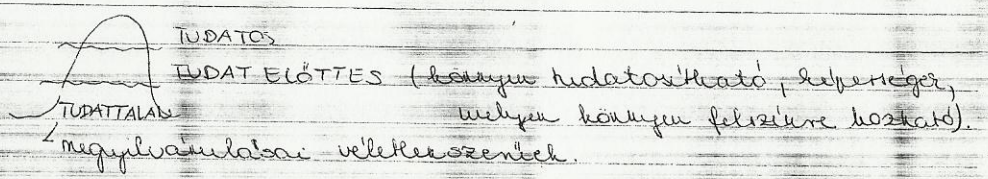 TUDATOS
TUDAT ELŐTTES (könnyen tudatosítható, képességek,
melyek könnyen felszínre hozható).
TUDATTALAN
megnyilvánulásai véletlenszerűek.